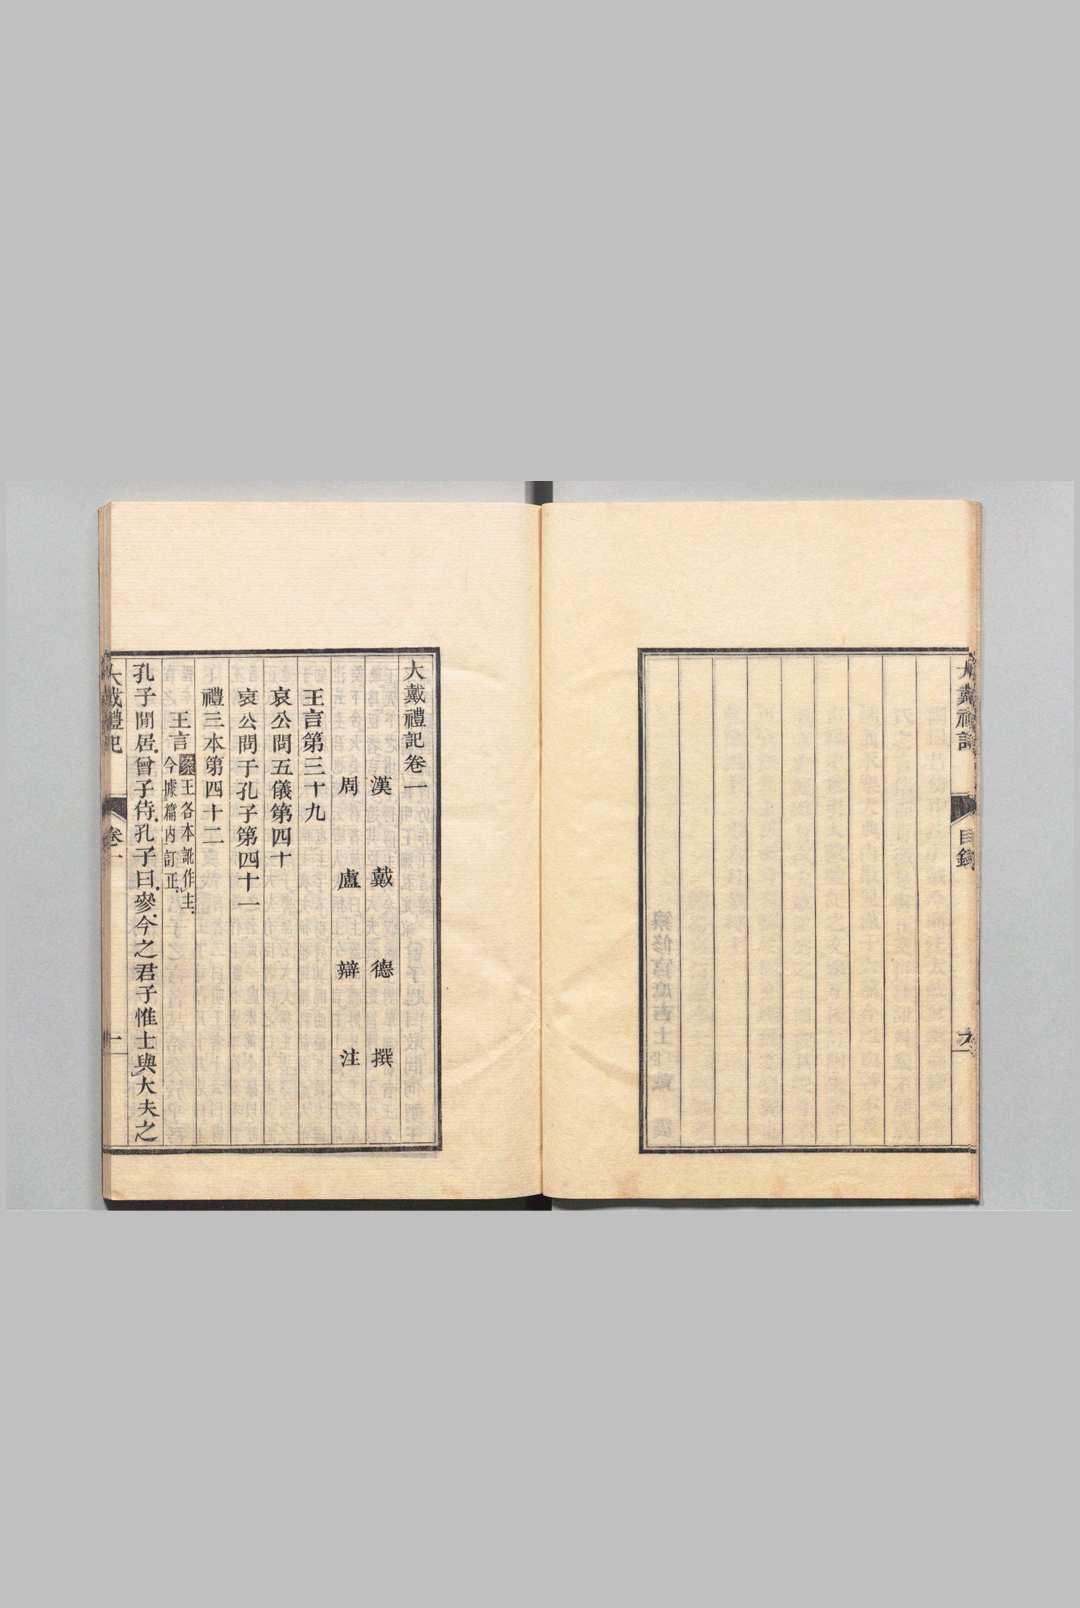 大戴禮記
目錄
大戴禮記卷一
漢 戴 德 撰
周 盧 辯 注
王言第三十九
哀公問五儀第四十
哀公問于孔子第四十一
禮三本第四十二
王言 案王各本訛作主
今據篇內訂正
孔子閒居曾子侍孔子曰參今之君子惟士與大夫之
大戴禮記
卷一
一